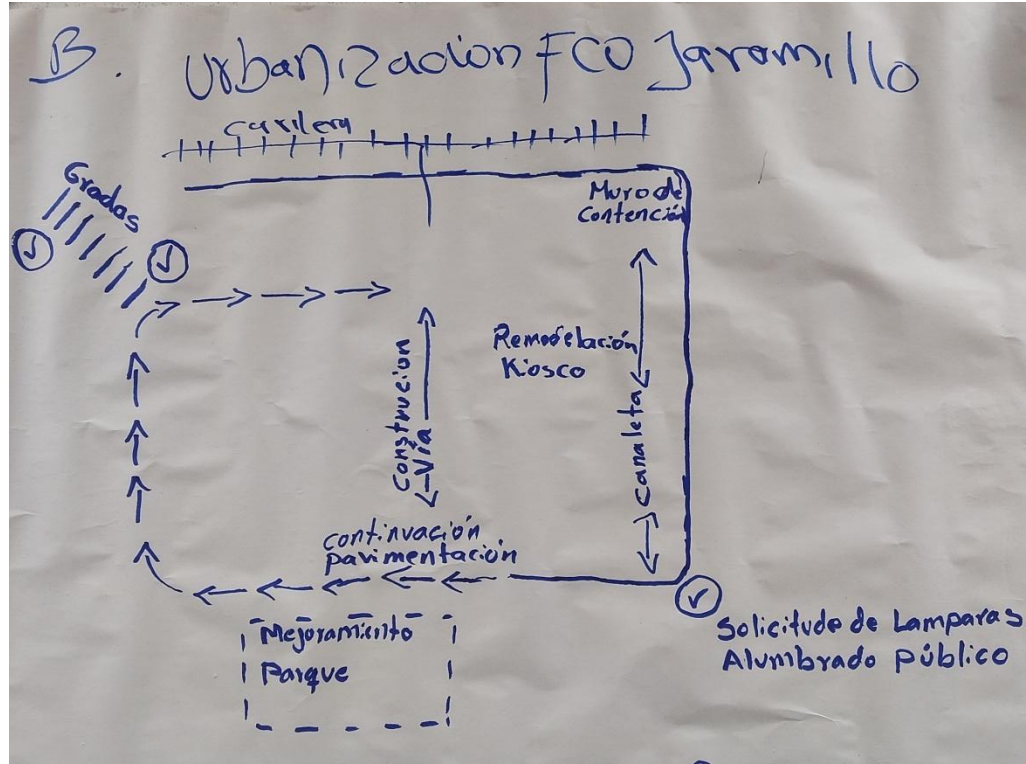 B. Urbanizacion FCO Jaramillo
Carrilera
Gradas
Muro de
Contención
Remodelación
Kiosco
Construcion
Vía
Canaleta
continuación
pavimentación
Mejoramiento
Parque
Solicitude de Lamparas
Alumbrado Público